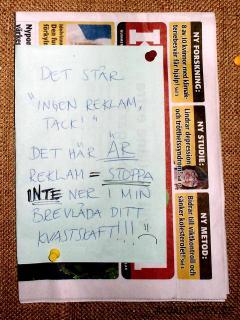 DET STÅR
"INGEN REKLAM,
TACK!"
DET HÄR ÄR
REKLAM = STOPPA
INTE NER I MIN
BREVLÅDA DITT
KVASTSKAFT!!!
NY FORSKNING:
8 av 10 kvinnor med klimakteriebesvär får hjälp!
NY STUDIE:
Lindrar depression
och trötthetssyndrom
NY METOD:
Bidrar till viktkontroll och
sänker kolesterolet!